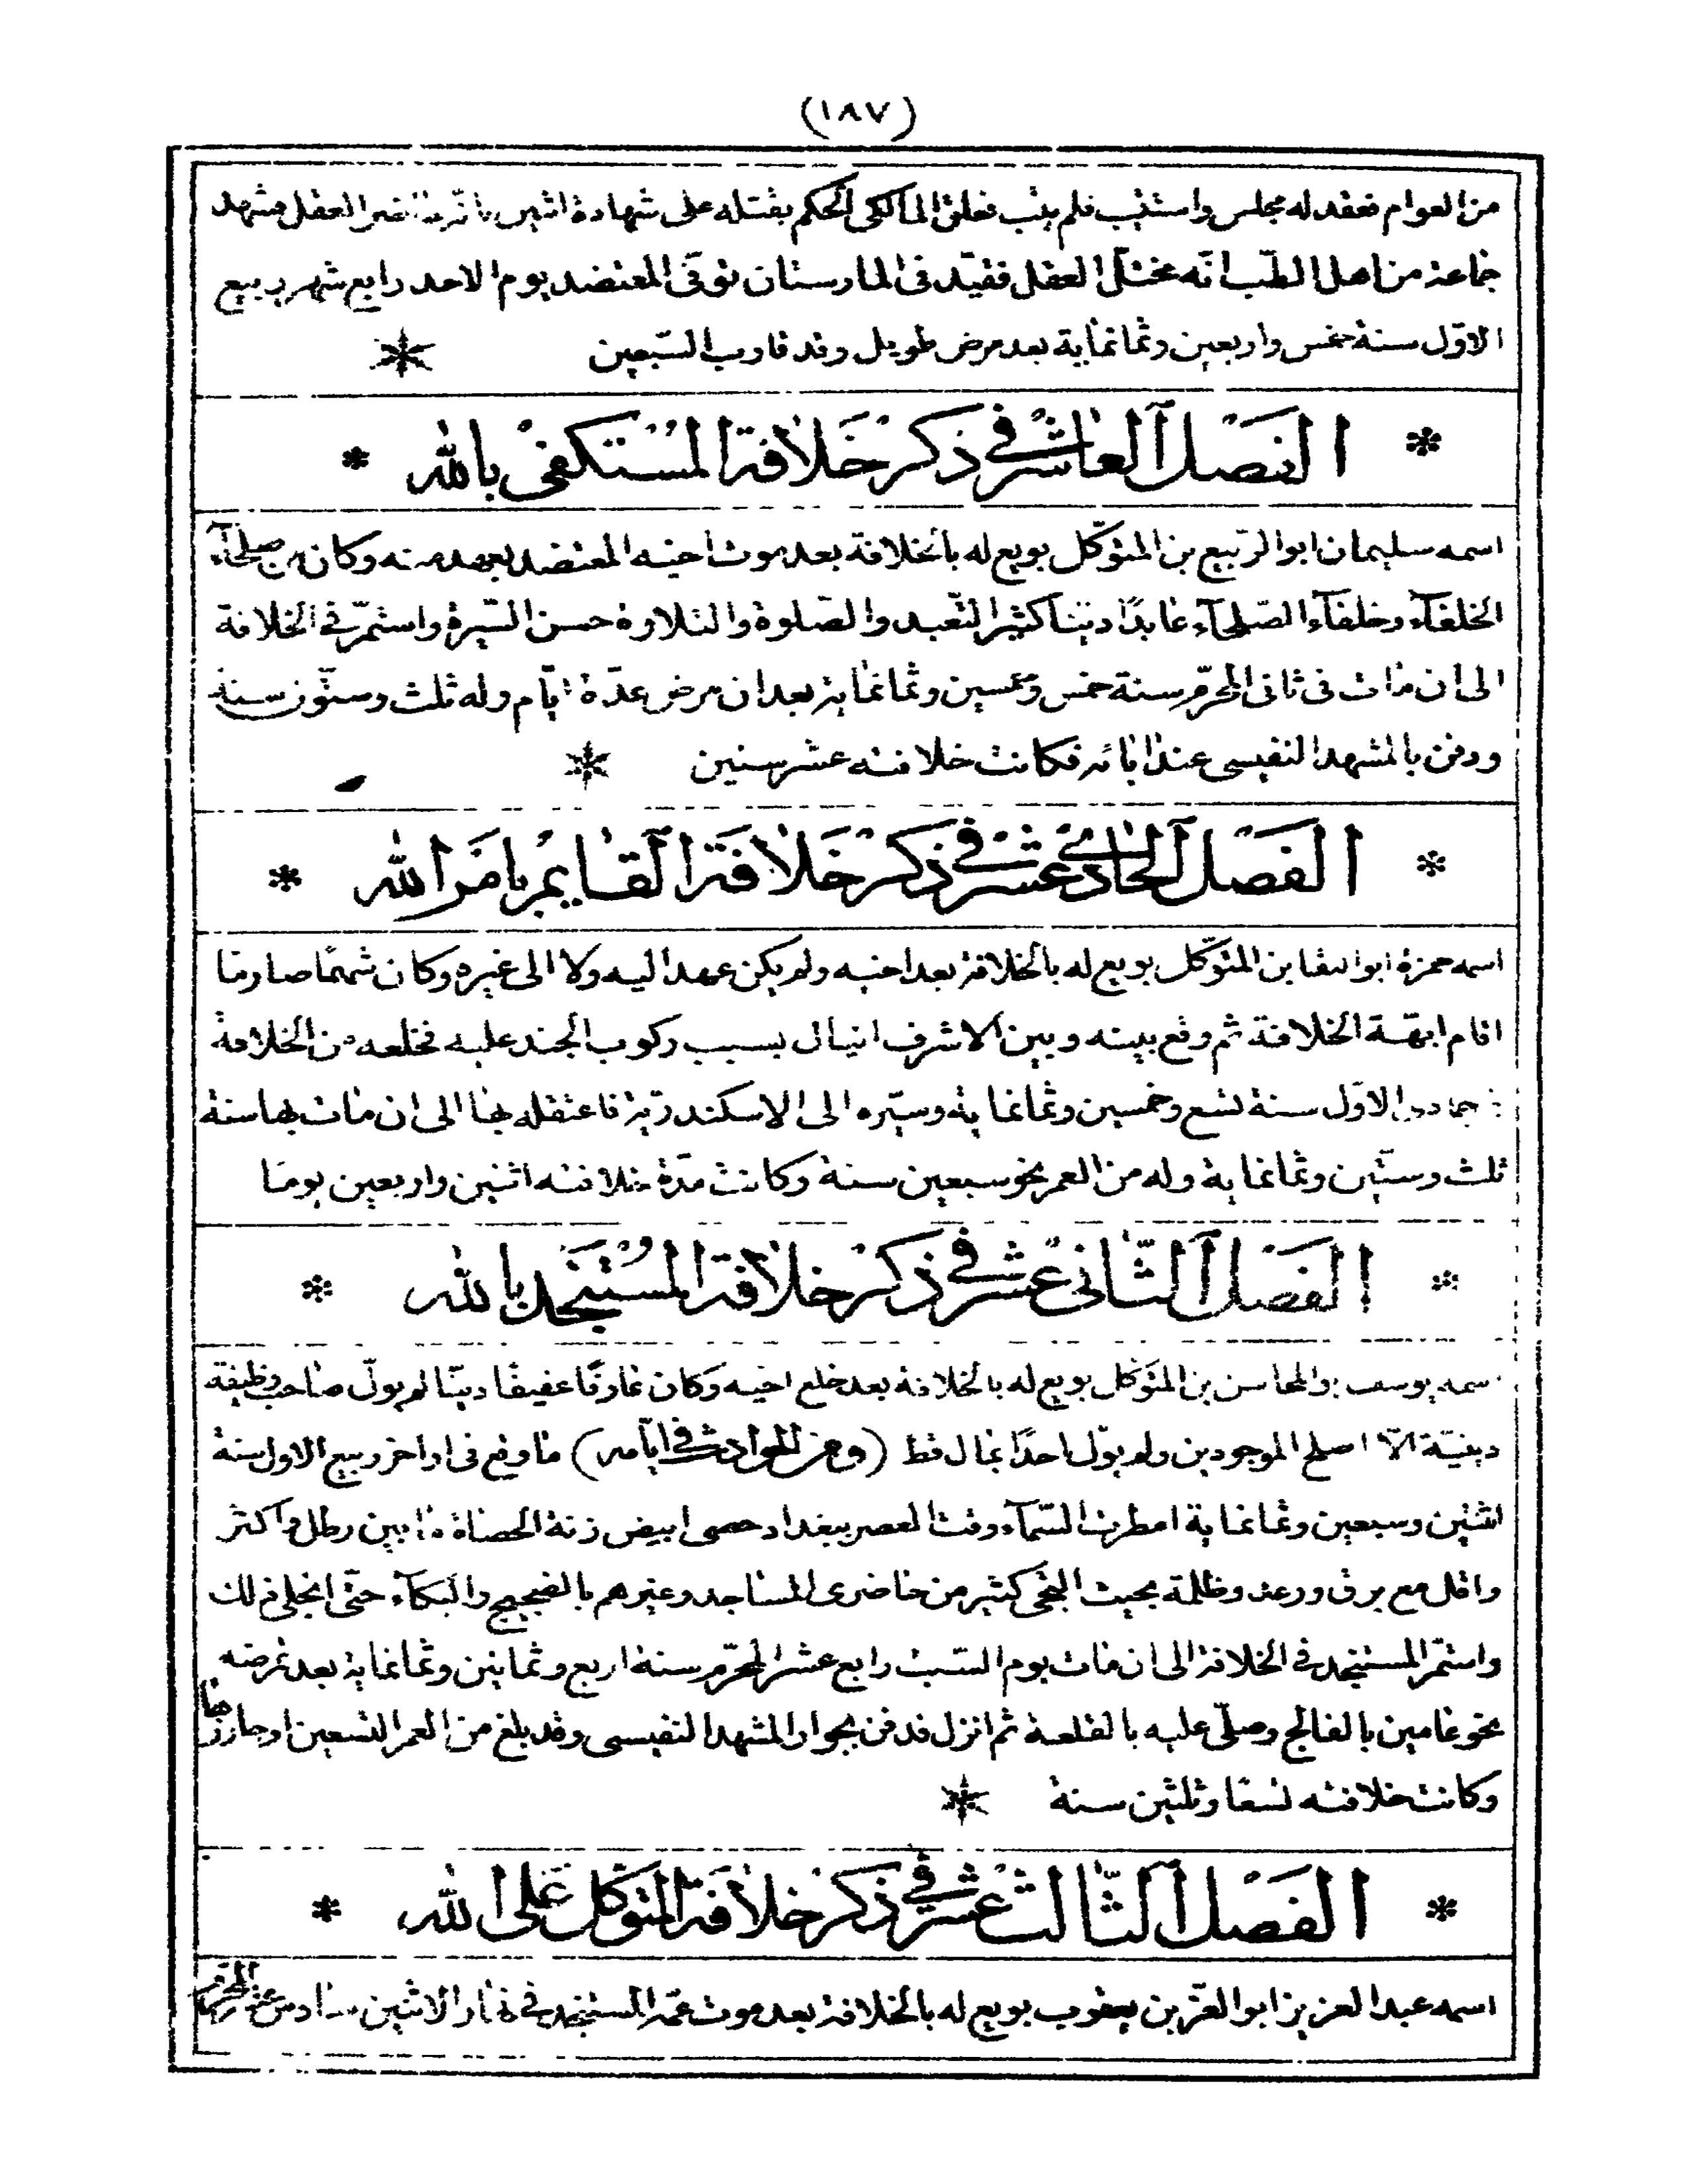 (١٨٧)
من العوام فعقد له مجلس واستتيب فلم يتب فعلق المالكى الحكم بقتله على شهادة اثنين بانه العقل فشهد
جماعة من اهل الطبّ انّه مختلّ العقل فقيّد فى المارستان توفى المعتضد يوم الاحد رابع شهر ربيع
الاوّل سنة خمس واربعين وثمانماية بعد مرض طويل وقد قارب السّبعين
* الفصل العاشر فى ذكر خلافة المستكفى بالله *
اسمه سليمان ابو الربيع بن المتوكّل بويع له بالخلافة بعد موت اخيه المعتضد بعهد منه وكان من صلحآء
الخلفآء وخلفآء الصّلحآء عابدًا ديّنا كثير التّعبد والصّلوة والتلاوة حسن السّيرة واستمرّ فى الخلافة
الى ان مات فى ثانى المحرّم سنة خمس وخمسين وثمانماية بعد ان مرض عدّة ايّام وله ثلث وستّون سنة
ودفن بالمشهد النفيسى عند ابائه فكانت خلافته عشر سنين
* الفصل الحادى عشر فى ذكر خلافة القايم بامر الله *
اسمه حمزة ابو البقا بن المتوكّل بويع له بالخلافة بعد اخيه ولم يكن عهد اليه ولا الى غيره وكان شهمًا صارمًا
اقام ابهّة الخلافة ثم وقع بينه وبين الاشرف اينال بسبب ركوب الجند عليه فخلعه من الخلافة
فى جمادى الاوّل سنة تسع وخمسين وثمانماية وسيّره الى الاسكندريّة فاعتقله بها الى ان مات بها سنة
ثلث وستّين وثمانماية وله من العمر نحو سبعين سنة وكانت مدّة خلافته اثنين واربعين يومًا
* الفصل الثّانى عشر فى ذكر خلافة المستنجد بالله *
اسمه يوسف ابو المحاسن بن المتوكّل بويع له بالخلافة بعد خلع اخيه وكان عارفًا عفيفًا ديّنا لم يولّ صاحب وظيفة
دينيّة الّا اصلح الموجودين ولم يولّ احدًا بمال قط (ومن الحوادث فى ايّامه) ما وقع فى اواخر ربيع الاول سنة
اثنين وسبعين وثمانماية امطرت السّمآء وقت العصر ببغداد حصى ابيض زنة الحصاة ما بين رطل واكثر
واقل مع برق ورعد وظلمة بحيث التجى كثير من حاضرى المساجد وغيرهم بالضجيج والبكآء حتّى انجلى ذلك
واستمّر المستنجد فى الخلافة الى ان مات يوم السّبت رابع عشر المحرّم سنة اربع وثمانين وثمانماية بعد تمرضه
نحو عامين بالفالج وصلّى عليه بالقلعة ثم انزل فدفن بجوار المشهد النفيسى وقد بلغ من العمر التسعين او جاوزها
وكانت خلافته تسعًا وثلثين سنة
* الفصل الثّالث عشر فى ذكر خلافة المتوكّل على الله *
اسمه عبد العزيز ابو العزّ بن يعقوب بويع له بالخلافة بعد موت عمّه المستنجد فى نهار الاثنين سادس عشر المحرّم